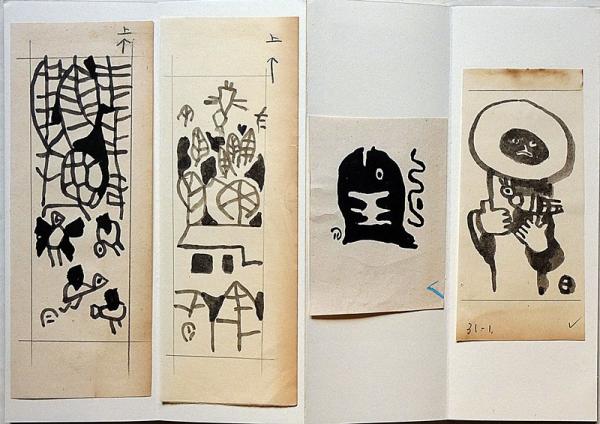 上
上
左
31-1.